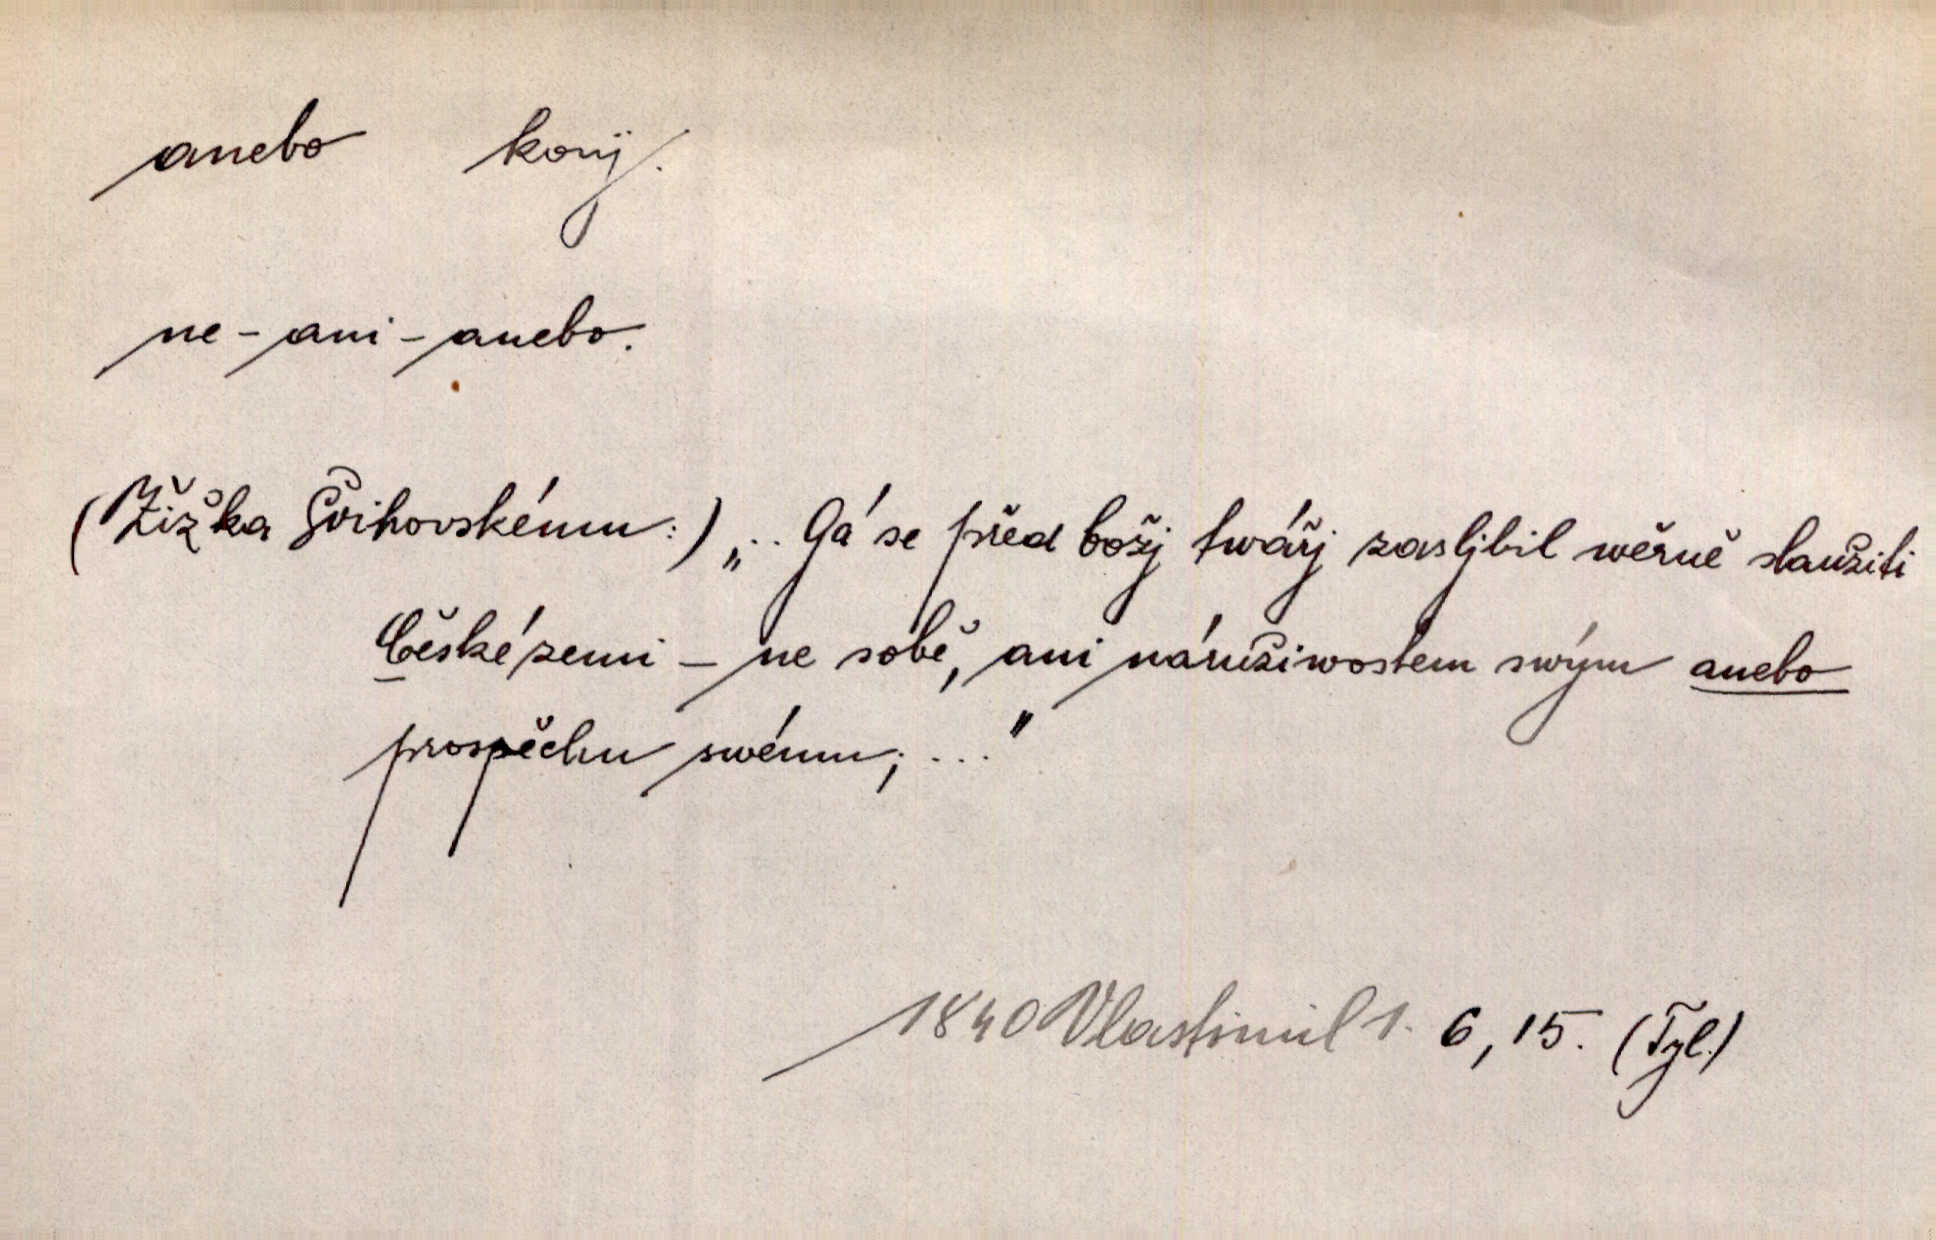 anebo konj.
ne - ani - anebo.
(Žižka Švihovskému:) „.. Gá se před božj twářj zasljbil wěrně slaužiti
České zemi - ne sobě, ani náružiwostem swým anebo
prospěchu swému; ..."
1840 Vlastimil 1. 6, 15. (Tyl.)